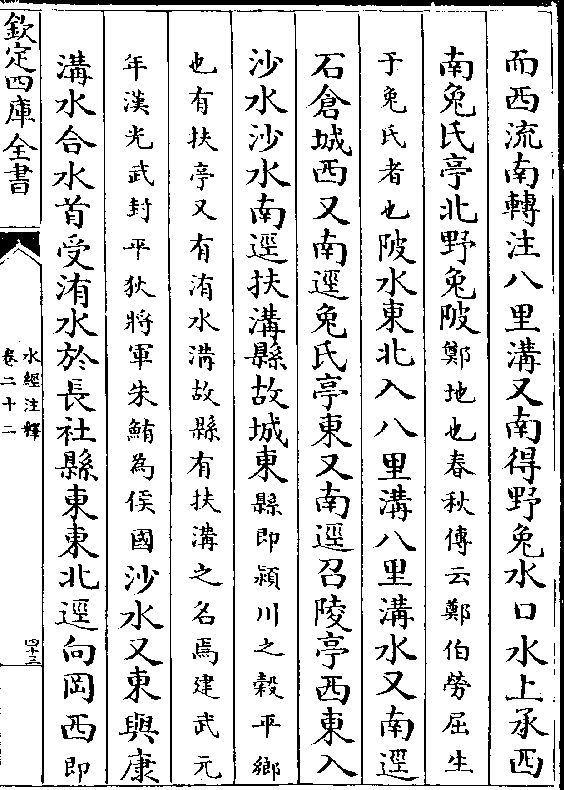 而西流南轉注八里溝又南得野兔水口水上承西
南兔氏亭北野兔陂鄭地也春秋傳云鄭伯勞屈生
于兔氏者也陂水東北入八里溝八里溝水又南逕
石倉城西又南逕兔氏亭東又南逕召陵亭西東入
沙水沙水南逕扶溝縣故城東縣即潁川之穀平鄉
也有扶亭又有洧水溝故縣有扶溝之名焉建武元
年漢光武封平狄將軍朱鮪為侯國沙水又東與康
溝水合水首受洧水於長社縣東東北逕向岡西即
欽定四庫全書
水經注釋
卷二十二
四十三